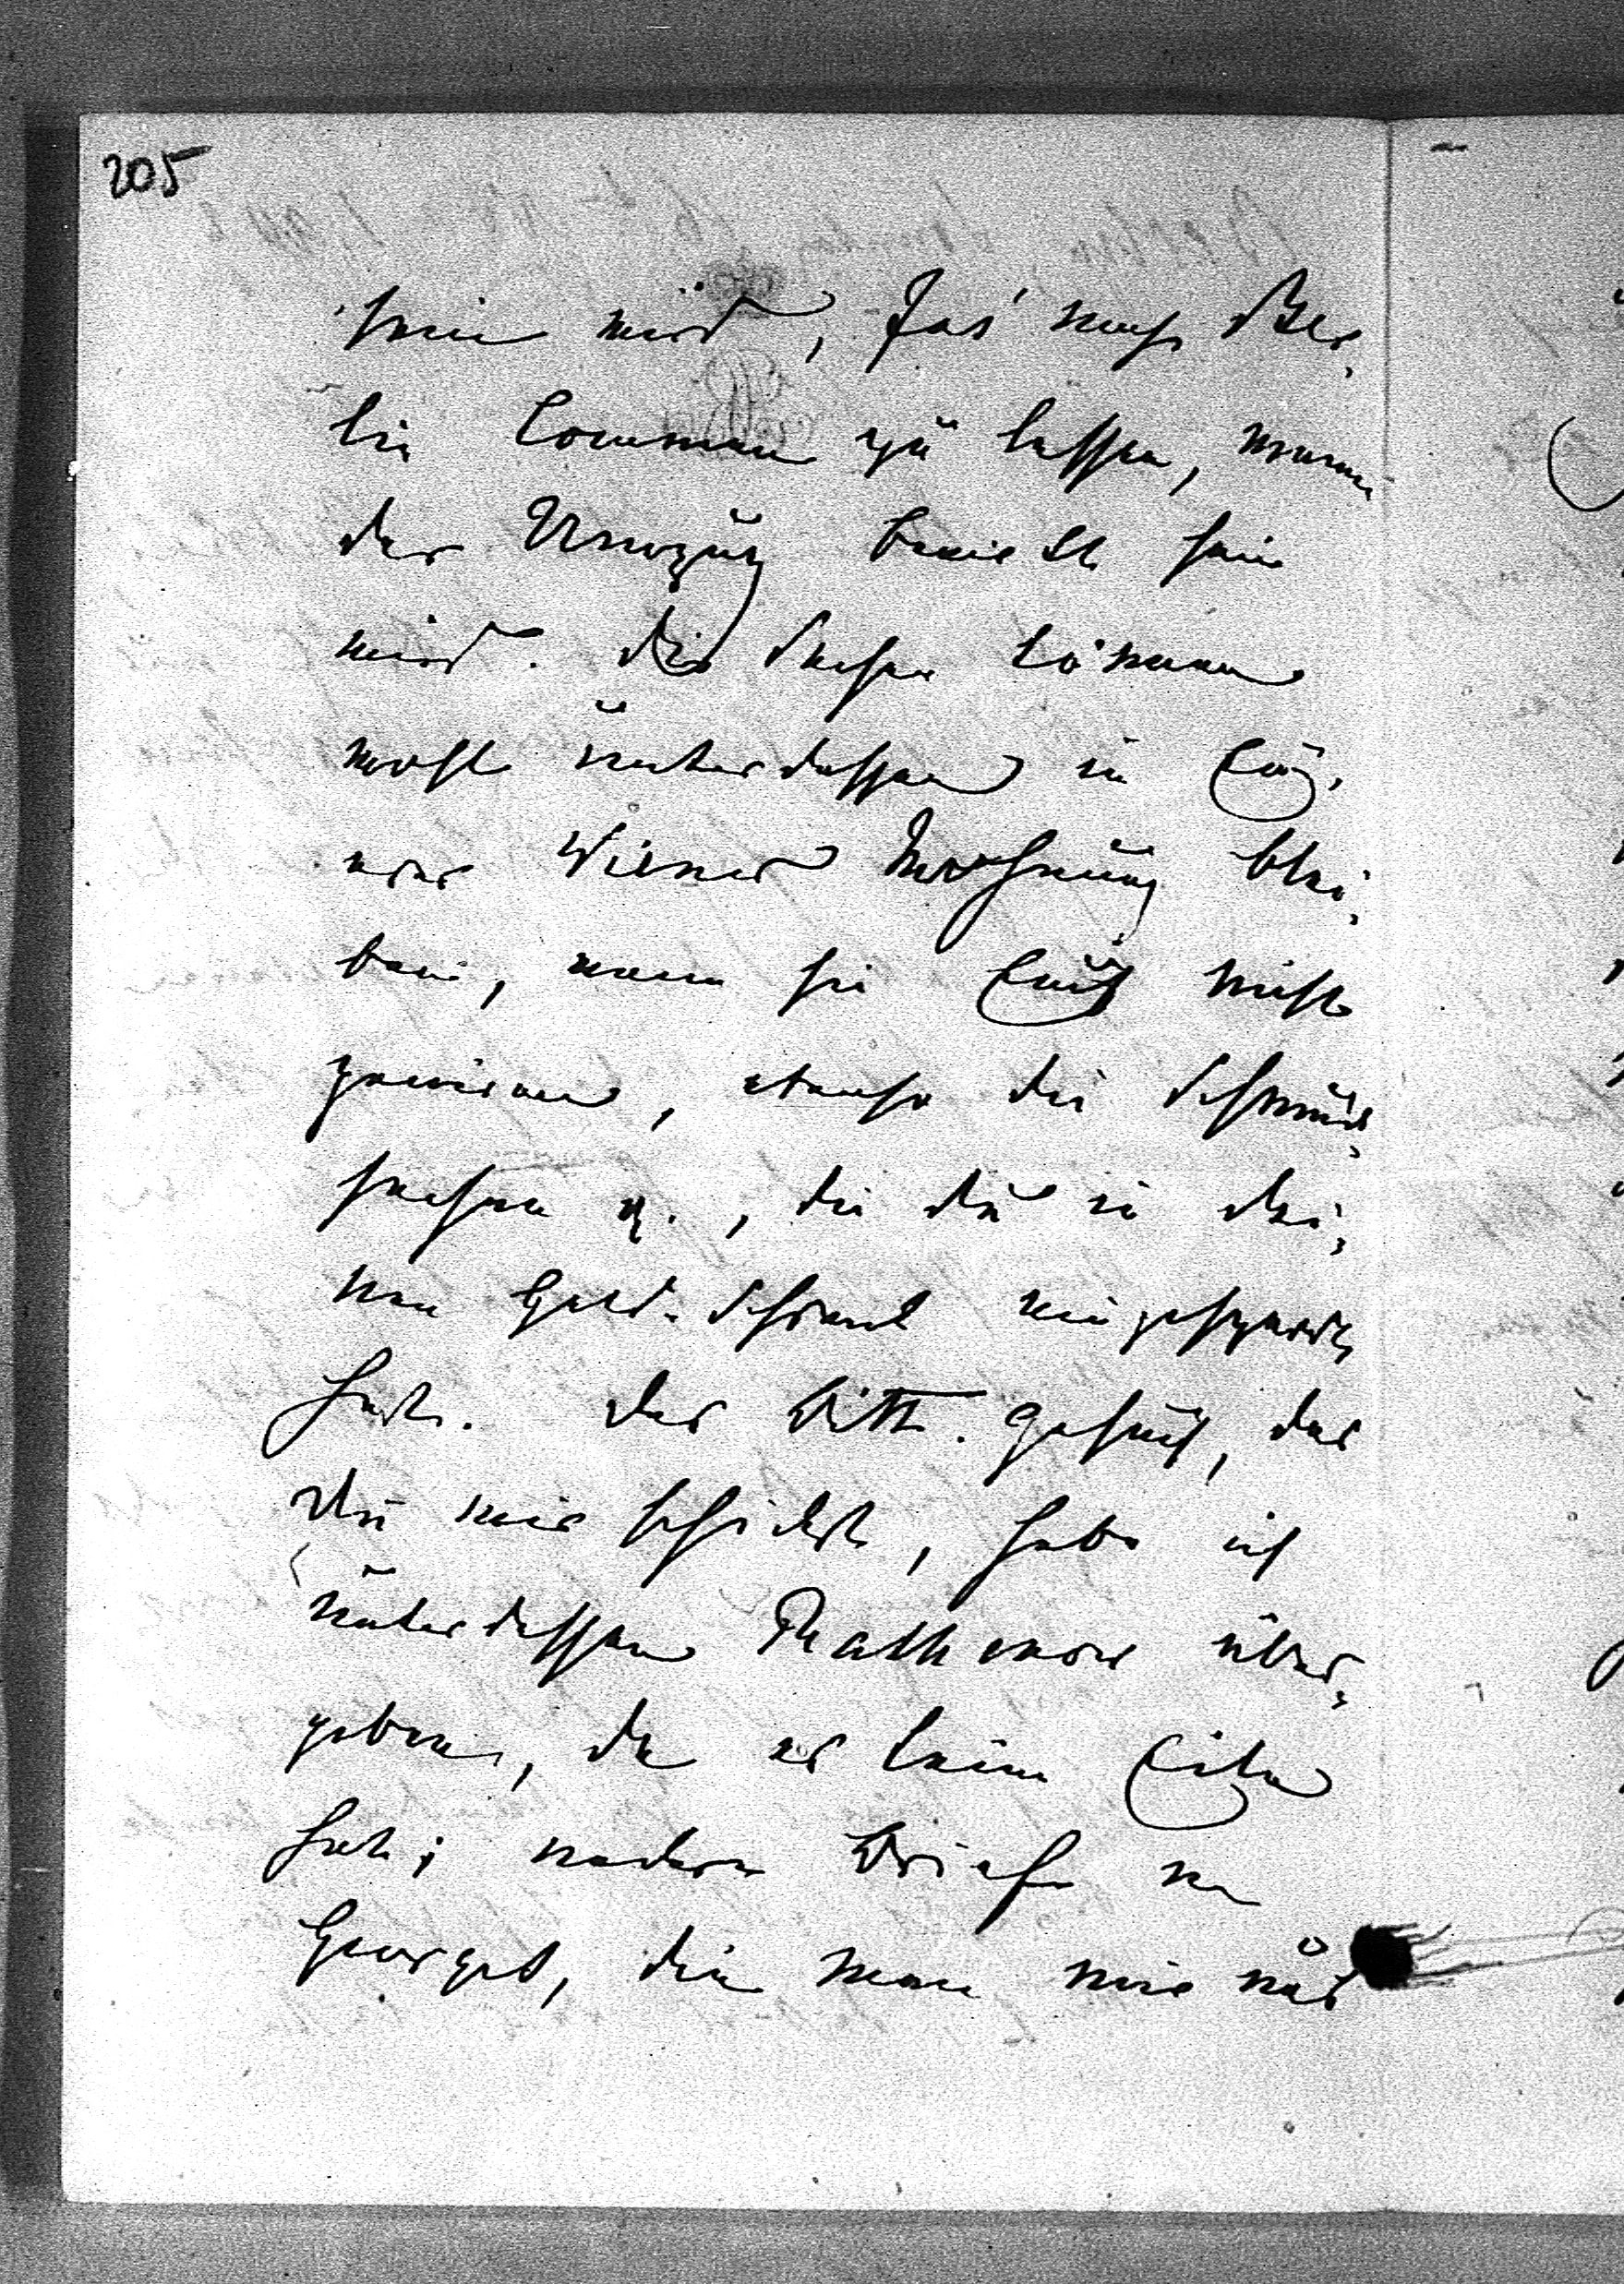 205
sein wird, Das nach Ber-
lin kommen zu lassen, wenn
der Umzug bereits sein
wird. Die Sachen können
wohl unterdessen in Eu-
rer Wiener Wohnung blei-
ben, wenn sie Euch nicht
geniren, ebenso die Schmuck-
sachen etc., die du in dei-
nen Geld-Schrank eingesperrt
hast. Das Bitt-Gesuch, das
Du mir schickst, habe ich
unterdessen Rathenow über-
geben, da es keine Eile
hat; andere Briefe an
Georges, die man mir nach